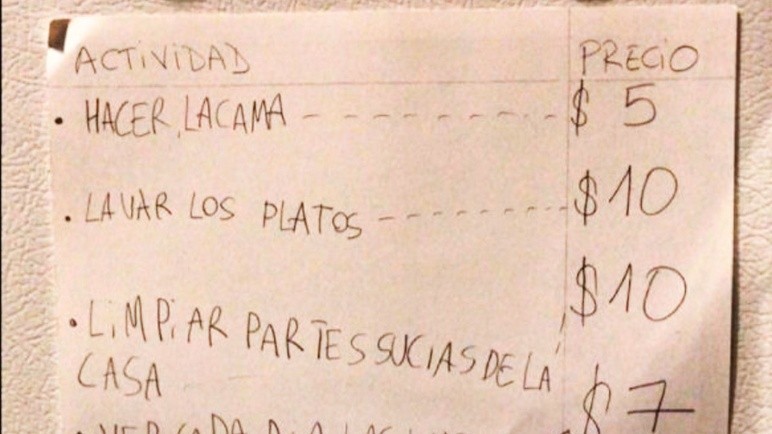 ACTIVIDAD PRECIO
• HACER LA CAMA - - - - - - - - - - $ 5
• LAVAR LOS PLATOS - - - - - - - - $10
$10
• LIMPIAR PARTES SUCIAS DE LA
CASA
$7